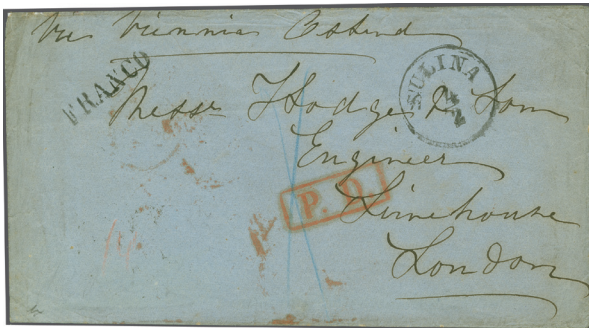 Via Vienna Ostend
FRANCO
SULINA
Messrs T Hodge & Son
Engineer
P. D.
Limehouse
London